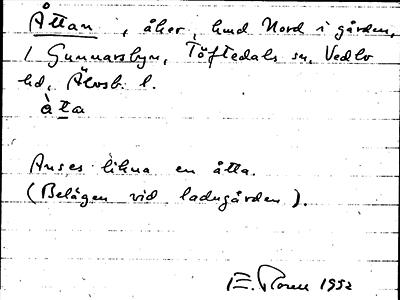 Åttan, åker, hmd Nord i gården,
1 Gunnarsbyn, Töftedals sn, Vedbo
hd, Älvsb. l.
àta
Anses likna en åtta.
(Belägen vid ladugården).
E. Noren 1932